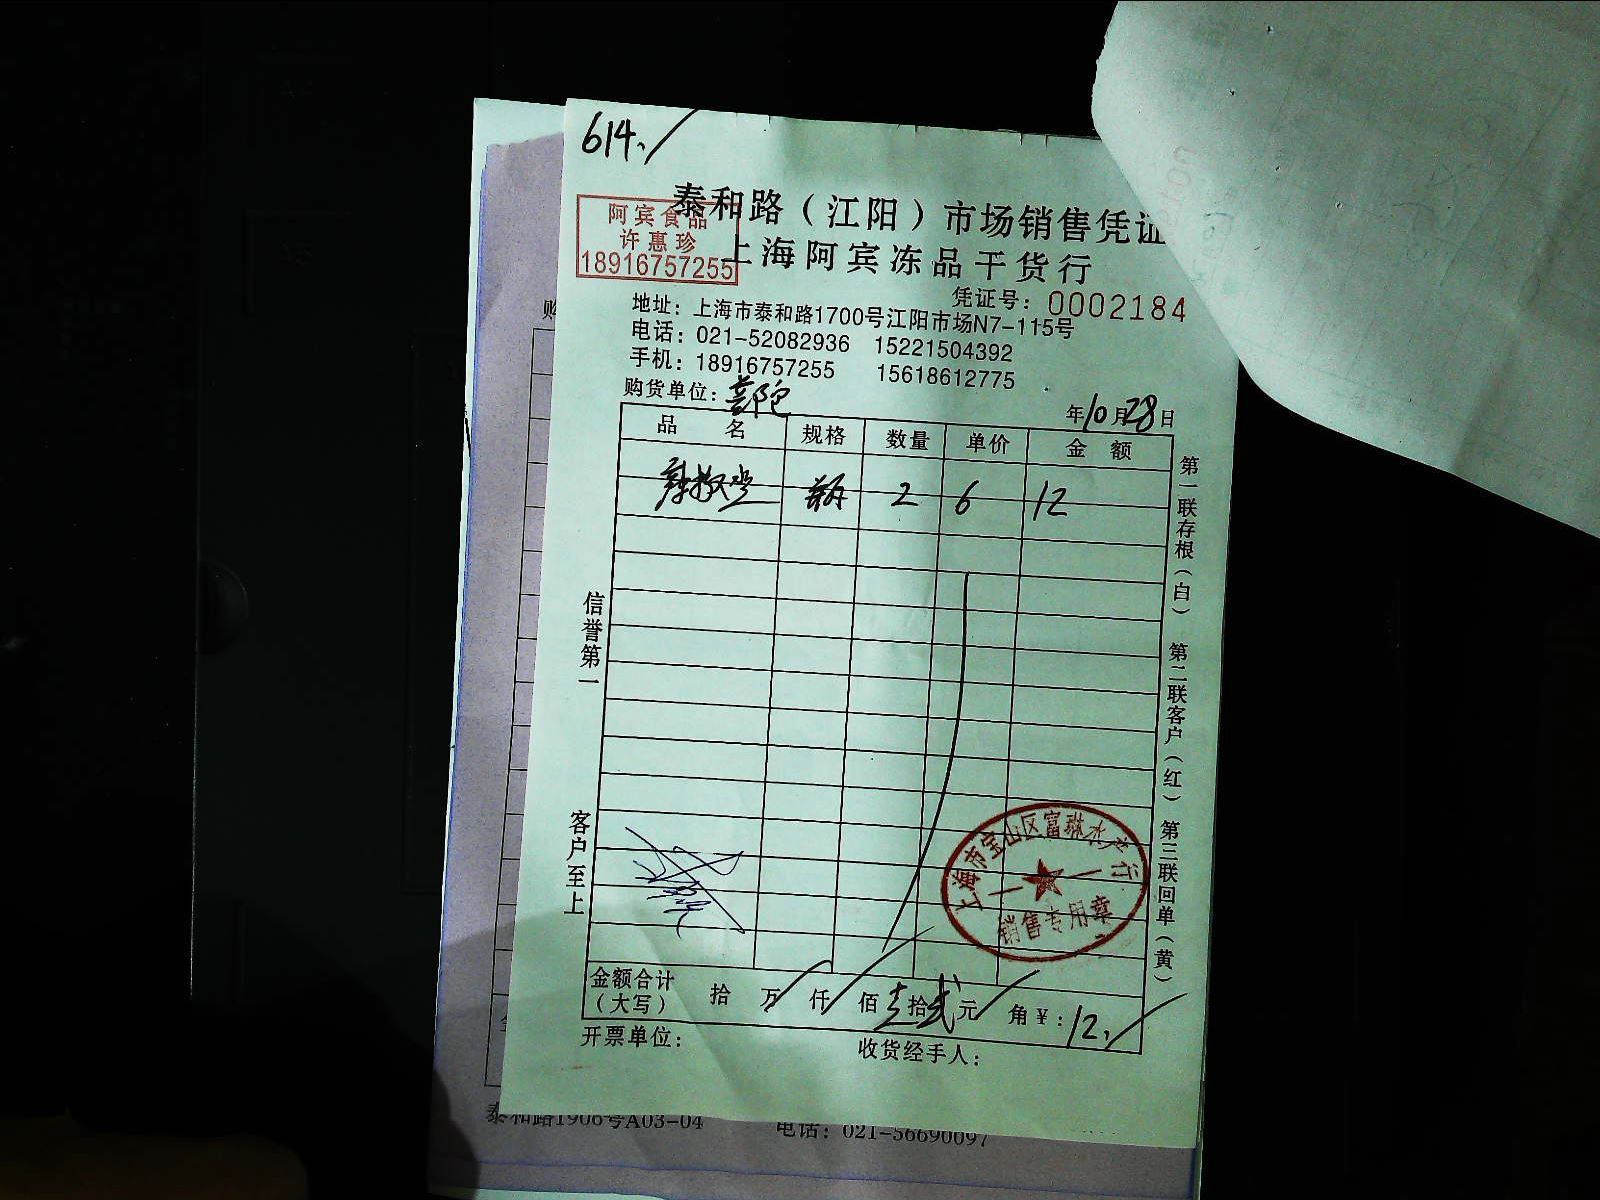 614.
泰和路（江阳）市场销售凭证
阿宾食品
许惠珍
18916757255
上海阿宾冻品干货行
凭证号：0002184
地址：上海市泰和路1700号江阳市场N7-115号
电话：021-52082936 15221504392
手机：18916757255 15618612775
购货单位：
年10月28日
品名 规格 数量 单价 金额
瓶 2 6 12
第一联存根（白） 第二联客户（红） 第三联回单（黄）
信誉第一
客户至上
上海市宝山区富琳水产行
销售专用章
金额合计（大写） 拾 万 仟 佰 壹拾贰元 角 ¥：12.
开票单位：
收货经手人：
购
泰和路1906号A03-04 电话：021-56690097